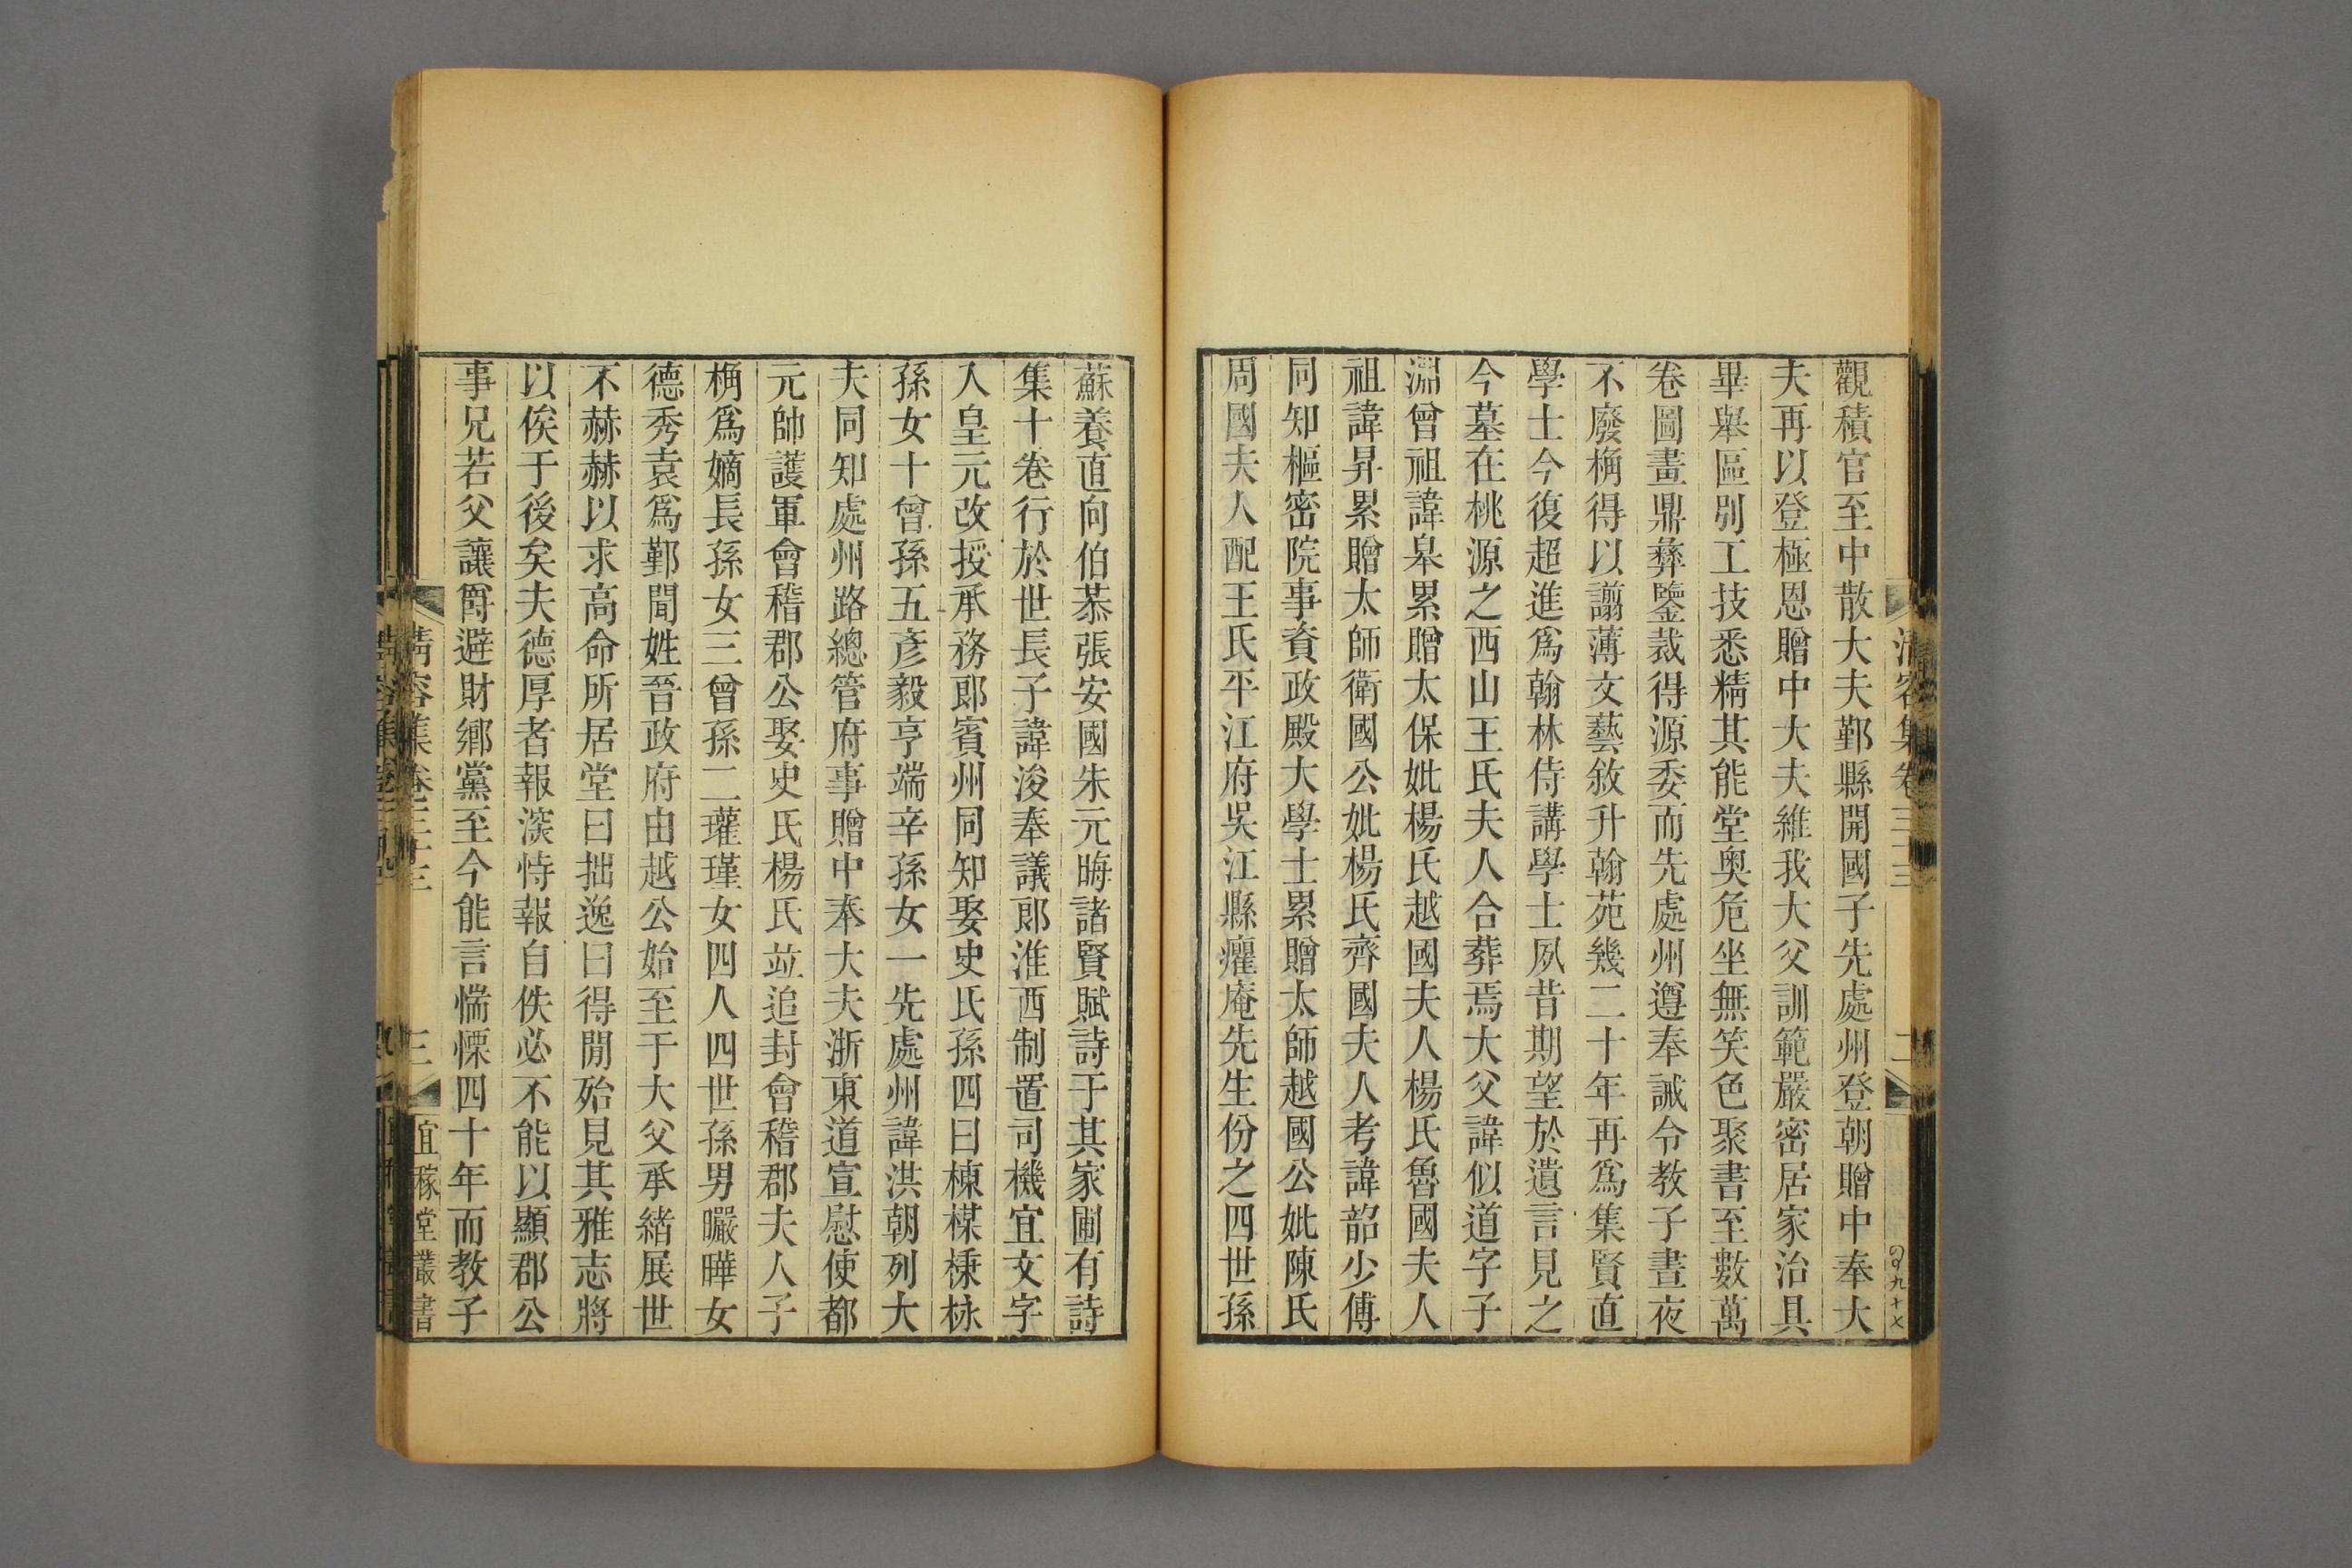 觀積官至中散大夫鄞縣開國子先處州登朝贈中奉大
夫再以登極恩贈中大夫維我大父訓範嚴密居家治具
畢舉區別工技悉精其能堂奥危坐無笑色聚書至數萬
卷圖畫鼎彝鑒裁得源委而先處州遵奉誡令教子晝夜
不廢桷得以謭薄文藝敘升翰苑幾二十年再爲集賢直
學士今復超進爲翰林侍講學士夙昔期望於遺言見之
今墓在桃源之西山王氏夫人合葬焉大父諱似道字子
淵曾祖諱皋累贈太保妣楊氏越國夫人楊氏魯國夫人
祖諱昇累贈太師衛國公妣楊氏齊國夫人考諱韶少傅
同知樞密院事資政殿大學士累贈太師越國公妣陳氏
周國夫人配王氏平江府吳江縣癯庵先生份之四世孫
蘇養直向伯恭張安國朱元晦諸賢賦詩于其家圃有詩
集十卷行於世長子諱浚奉議郎淮西制置司機宜文字
入皇元改授承務郎賓州同知娶史氏孫四曰棟楳棅栐
孫女十曾孫五彥毅亨端辛孫女一先處州諱洪朝列大
夫同知處州路總管府事贈中奉大夫浙東道宣慰使都
元帥護軍會稽郡公娶史氏楊氏竝追封會稽郡夫人子
桷爲嫡長孫女三曾孫二瓘瑾女四人四世孫男曮曄女
德秀袁爲鄞聞姓晉政府由越公始至于大父承緒展世
不赫赫以求高命所居堂曰拙逸曰得閒殆見其雅志將
以俟于後矣夫德厚者報湥恃報自佚必不能以顯郡公
事兄若父讓爵避財鄉黨至今能言惴慄四十年而教子
清容集 卷三十三
三
宜稼堂叢書